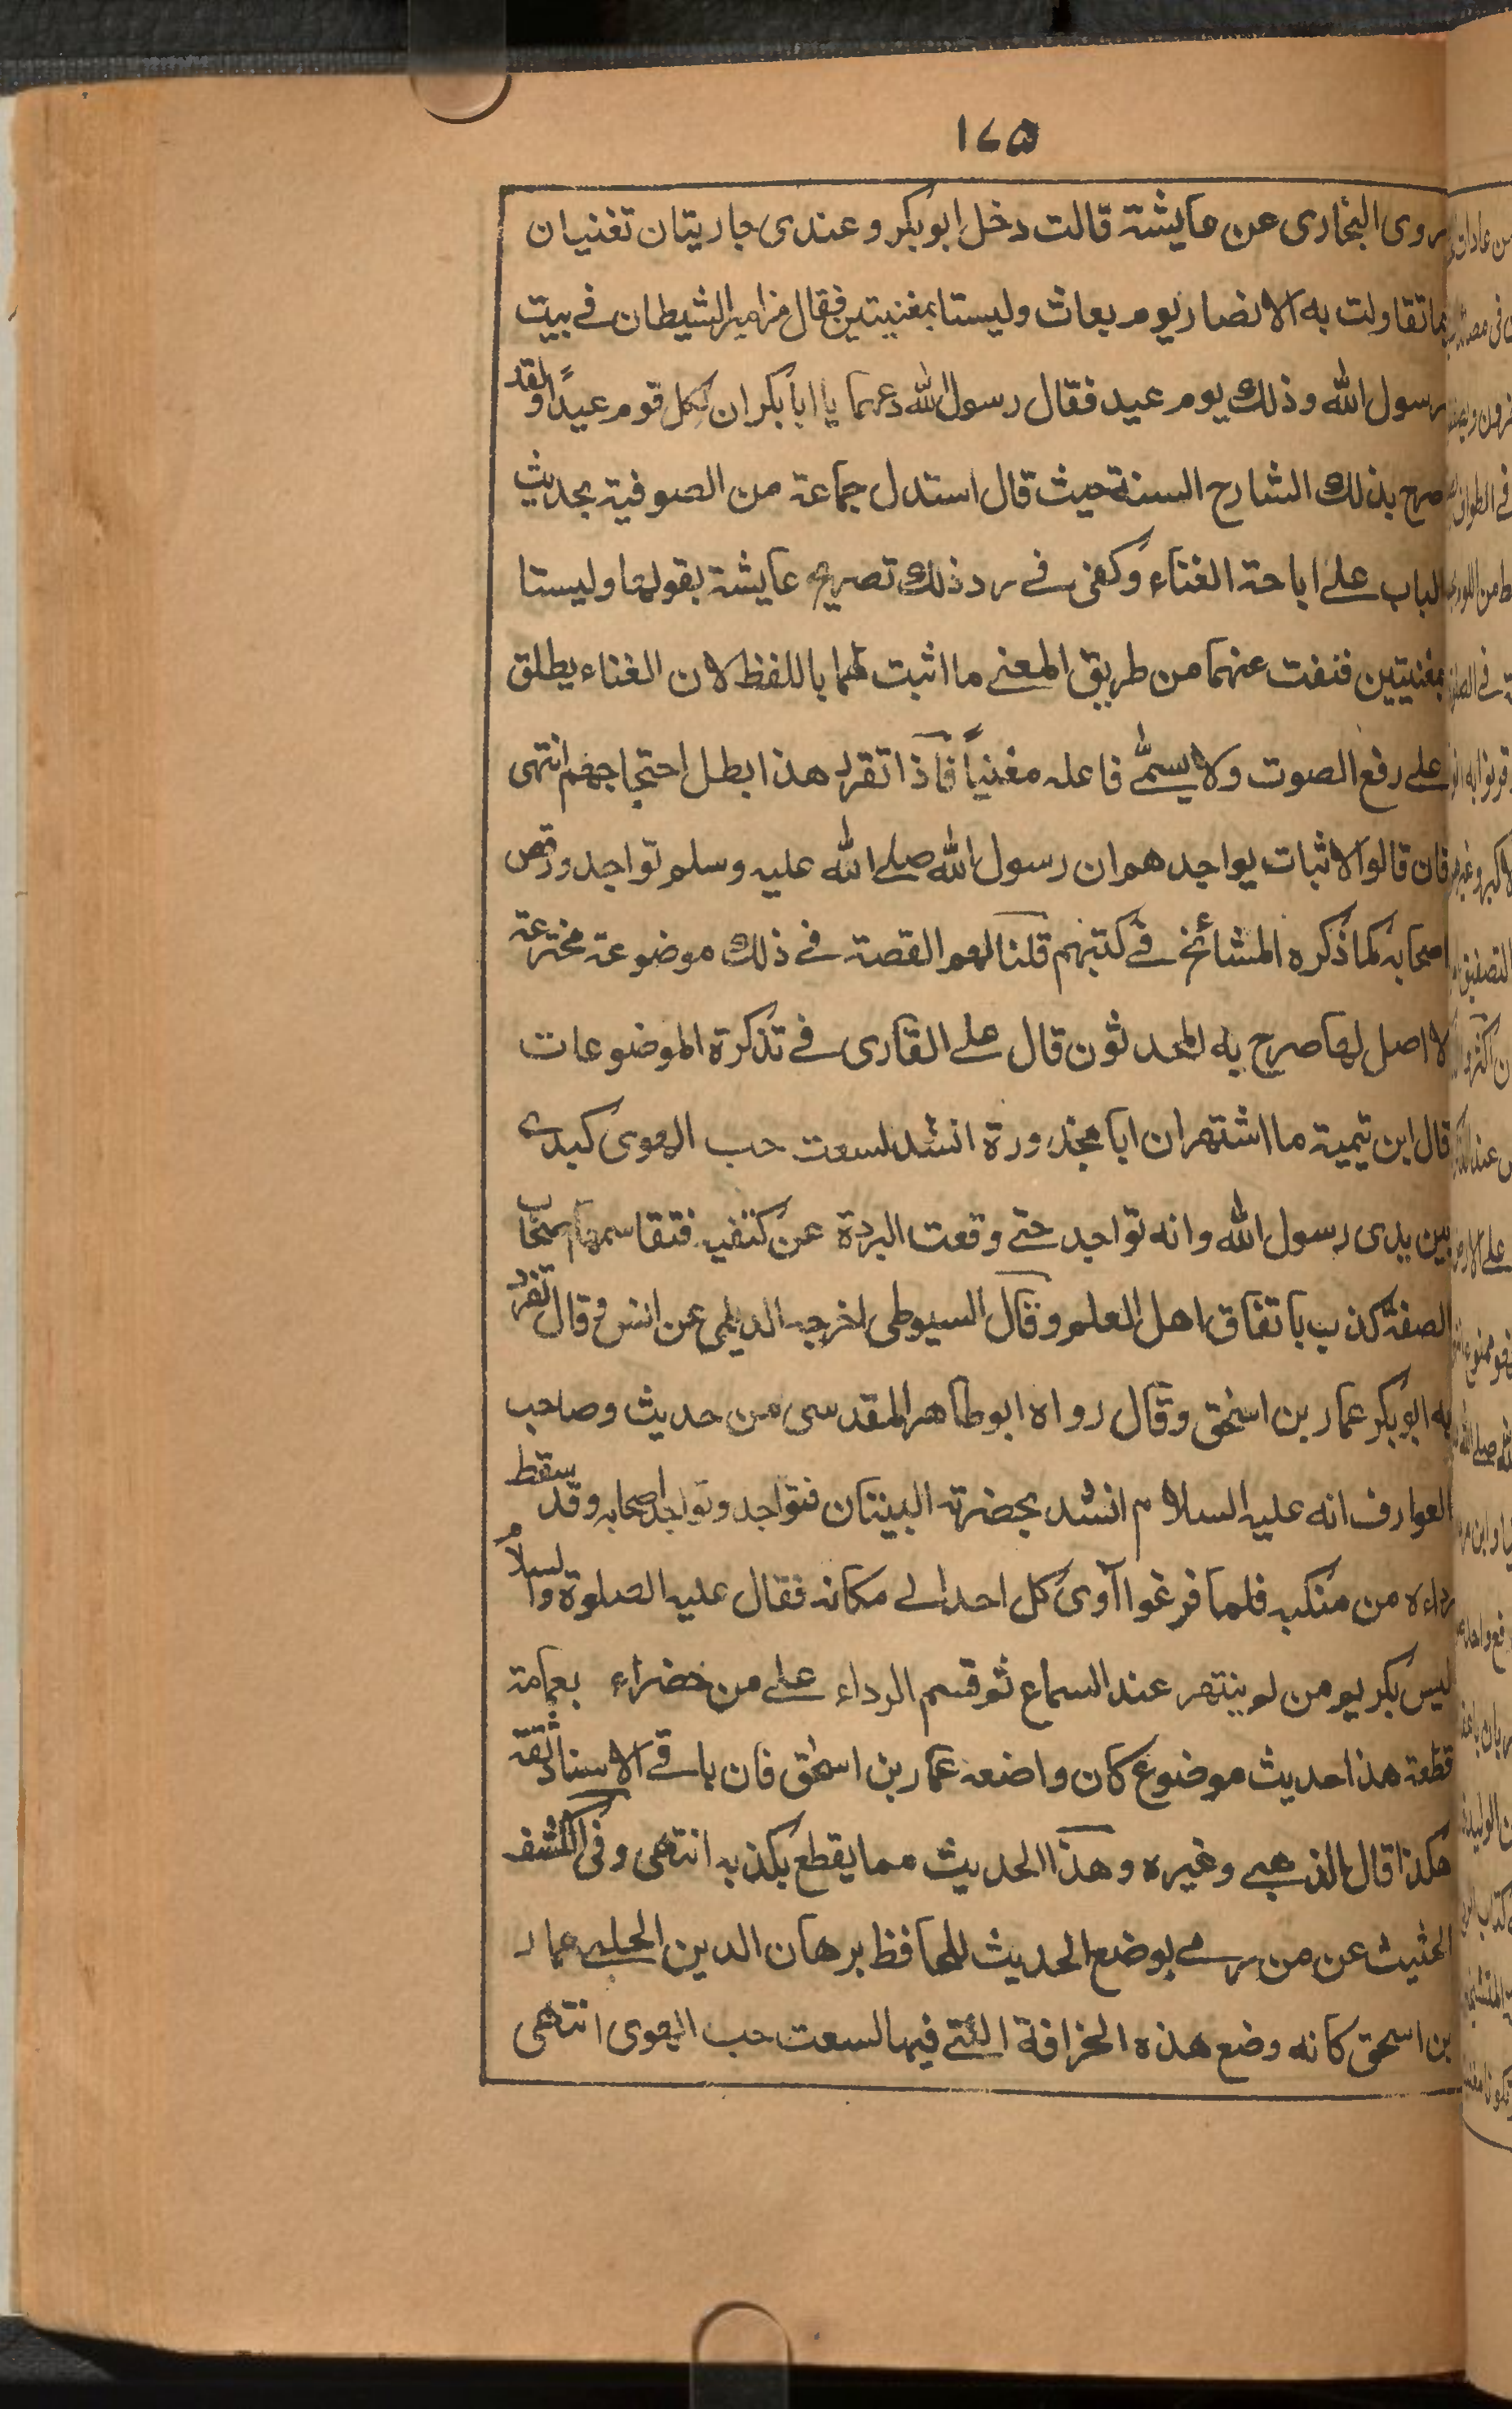 ١٧٥
روى البخارى عن عايشة قالت دخل ابوبكر وعندى جاريتان تغنيان
بما تقاولت به الانصار يوم بعاث وليستا بمغنيتين فقال مزامير الشيطان فے بيت
رسول الله وذلك يوم عيد فقال رسول الله دعهما يا ابا بكر ان لكل قوم عيداً ولقد
صرح بذلك الشارح السنة حيث قال استدل جماعة من الصوفية بحديث
الباب علے اباحة الغناء وكفى فے رد ذلك تصريح عايشة بقولها وليستا
بمغنيتين فنفت عنهما من طريق المعنے ما اثبت لهما باللفظ لان الغناء يطلق
علے رفع الصوت ولا يسمّٰے فاعله مغنياً فاذا تقرر هذا بطل احتجاجهم انتهى
فان قالوا لاثبات يواجد هم ان رسول الله صلے الله عليه وسلم تواجد ورقص
اصحابه كما ذكره المشائخ فے كتبهم قلنا لهم القصة فے ذلك موضوعة مخترعة
لا اصل لها صرح به المحدثون قال علے القارى فے تذكرة الموضوعات
قال ابن تيمية ما اشتهر ان ابا محذورة انشد لسعت حب الهوى كبدے
بين يدى رسول الله وانه تواجد حتے وقعت البردة عن كتفيه فتقاسمها اصحاب
الصفة كذب باتفاق اهل العلم وقال السيوطى اخرجه الديلمى عن انس وقال تفرد
به ابوبكر عمار بن اسحٰق وقال رواه ابو طاهر المقدسى من حديث وصاحب
العوارف انه عليه السلام انشد بحضرته البيتان فتواجد وتواجد اصحابه وقد سقط
رداءه من منكبه فلما فرغوا آوى كل احد الے مكانه فقال عليه الصلوة والسلام
ليس بكريم من لم ينتهر عند السماع ثم قسم الرداء علے من خضراء بعمامة
قطعة هذا حديث موضوع كان واضعه عمار بن اسحٰق فان باقے الاسناد ثقة
هكذا قال الذهبے وغيره وهذا الحديث مما يقطع بكذبه انتهى وفى الكشف
الحثيث عن من رمے بوضع الحديث للحافظ برهان الدين الحلبے عمار
بن اسحق كانه وضع هذه الخرافة التے فيها لسعت حب الهوى انتهى